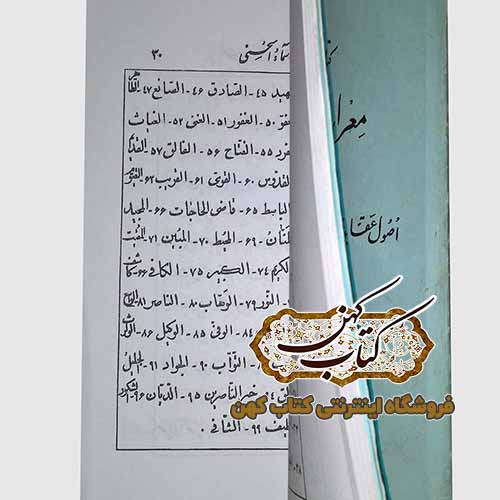 ۳۰
سماء الحسنی
۴۵ـ الصادق ۴۶ـ الصانع ۴۷ـ الطاهر
۵۰ـ الغفور ۵۱ـ الغنی ۵۲ـ الغیاث
۵۵ـ الفتاح ۵۶ـ الفالق ۵۷ـ القدیم
القدوس ۶۰ـ القوی ۶۱ـ القریب ۶۲ـ القیوم
الباسط ۶۵ـ قاضی الحاجات ۶۶ـ المجید
المنان ۶۹ـ المحیط ۷۰ـ المبین ۷۱ـ المقیت
الکریم ۷۴ـ الکبیر ۷۵ـ الکافی ۷۶ـ کاشف
النور ۷۹ـ الوهاب ۸۰ـ الناصر ۸۱ـ
۸۴ـ الوفی ۸۵ـ الوکیل ۸۶ـ الوارث
التواب ۹۰ـ الجواد ۹۱ـ الجلیل
۹۴ـ خیر الناصرین ۹۵ـ الدیان ۹۶ـ الشکور
۹۹ـ الشافی .
معرا
اصول عقا
کتاب کهن
فروشگاه اینترنتی کتاب کهن